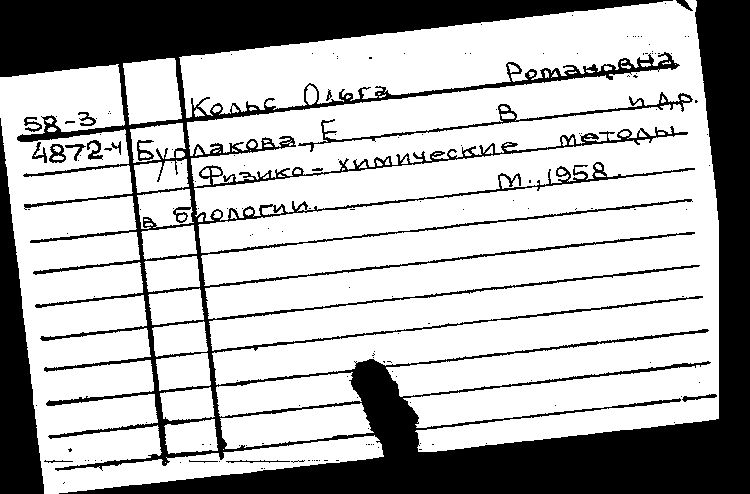 Кольс Ольга Романовна
58-3
4872-4 Бурлакова, Е. В и др.
Физико-химические методы
в биологии. М., 1958.